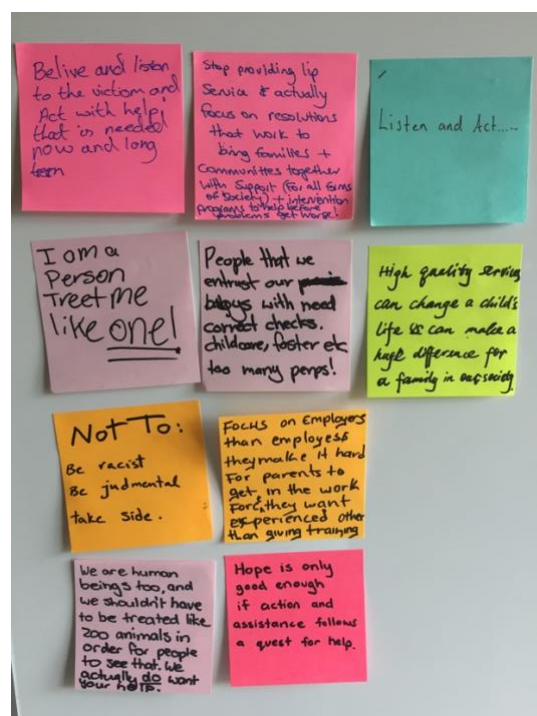 Belive and listen
to the victom and
Act with help!
that is needed
now and long
term
Stop providing lip
Service & actually
focus on resolutions
that work to
bing families +
Communities together
with Support (For all forms
of Society) + intervention
programs to help before
problems get worse!
Listen and Act.....
I am a
Person
Treet me
like one!
People that we
entrust our
babys with need
correct checks.
childcare, foster etc
too many perps!
High quality services
can change a child's
life & can make a
huge difference for
a family in our society
Not To:
Be racist
Be judmental
take side.
Focus on Employers
than employess
they make it hard
For parents to
get in the work
Force, they want
experienced other
than giving training
We are human
beings too, and
we shouldn't have
to be treated like
zoo animals in
order for people
to see that. We
actually do want
your help.
Hope is only
good enough
if action and
assistance follows
a quest for help.